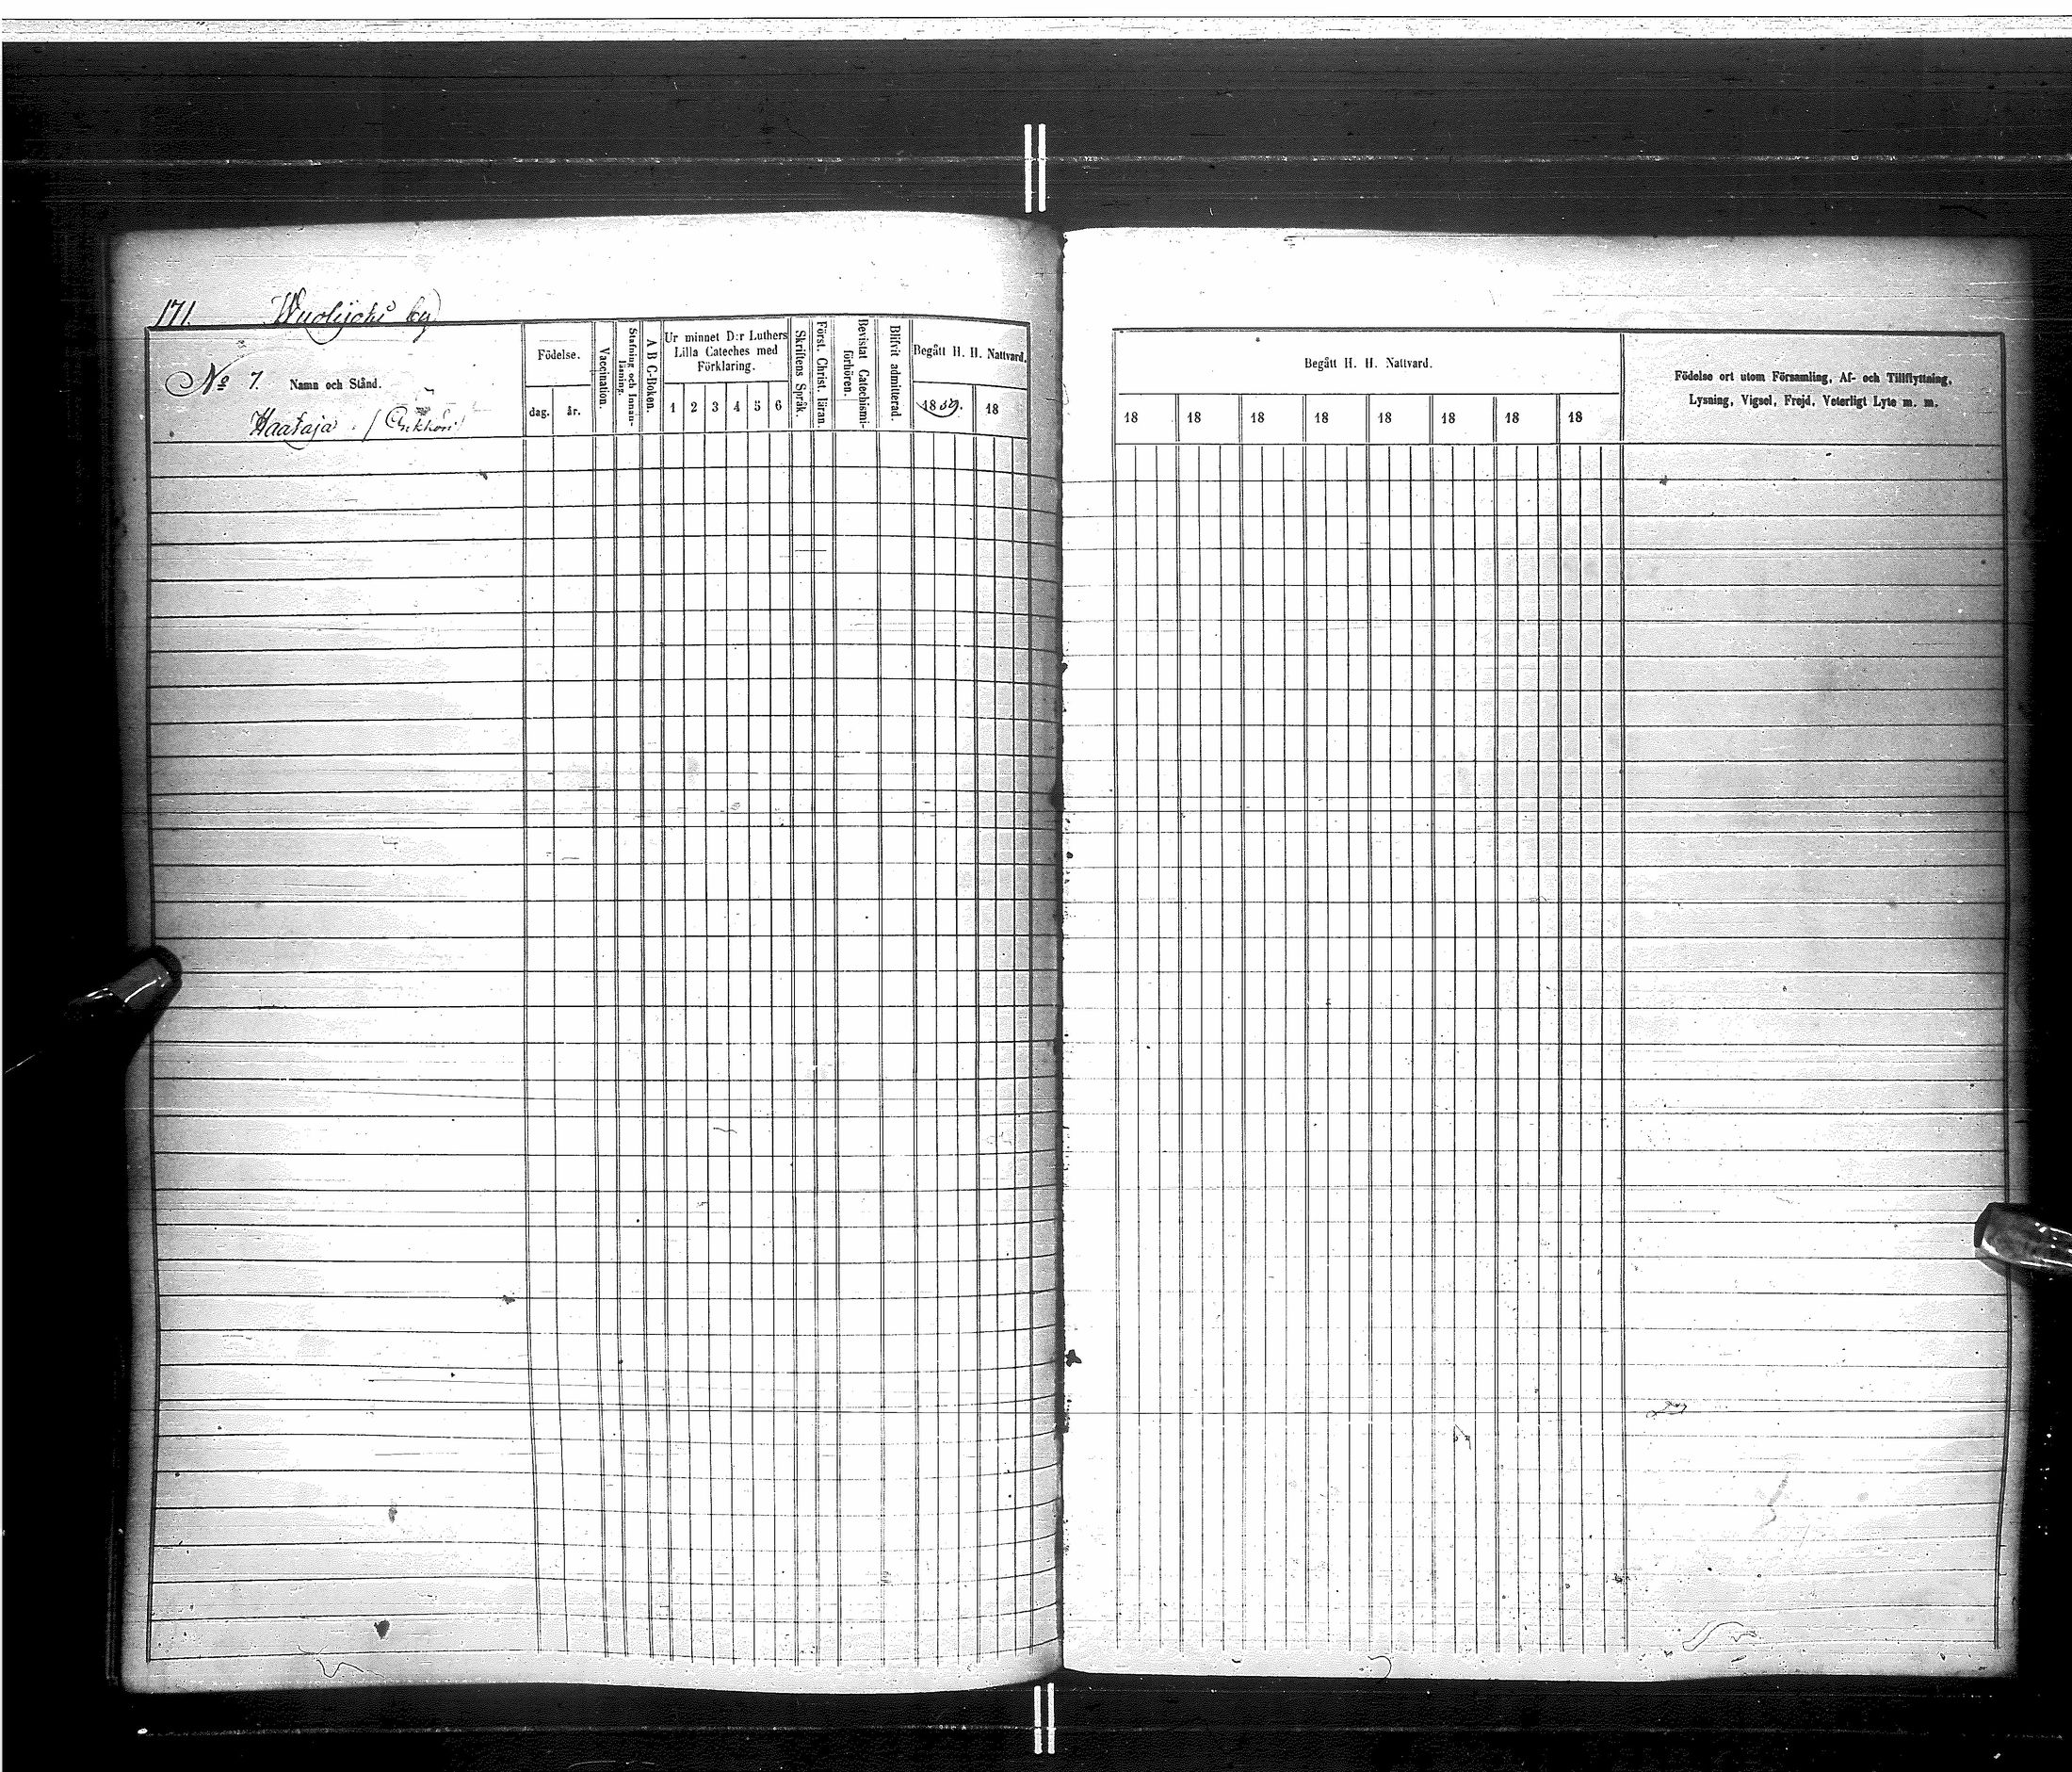 171. Wuolijoki by
№ 7. Namn och Stånd.
Haataja /
Födelse.
dag. år.
Vaccination.
Stafning och Innanläsning.
A B C-Boken.
Ur minnet D:r Luthers
Lilla Cateches med
Förklaring.
1 2 3 4 5 6
Skriftens Språk.
Först. Christ. läran.
Bevistat Catechismi-
förhören.
Blifvit admitterad.
Begått H. H. Nattvard.
1859. 18
Begått H. H. Nattvard.
18 18 18 18 18 18 18 18
Födelse ort utom Församling, Af- och Tillflyttning,
Lysning, Vigsel, Frejd, Veterligt Lyte m. m.